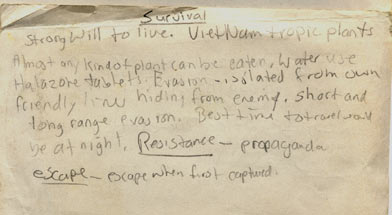 Survival
Strong will to live. VietNam tropic plants
Almost any kind of plant can be eaten. Water use
Halazone tablets. Evasion - isolated from own
friendly lines hiding from enemy. Short and
long range evasion. Best time to travel would
be at night. Resistance - propaganda
escape - escape when first captured.